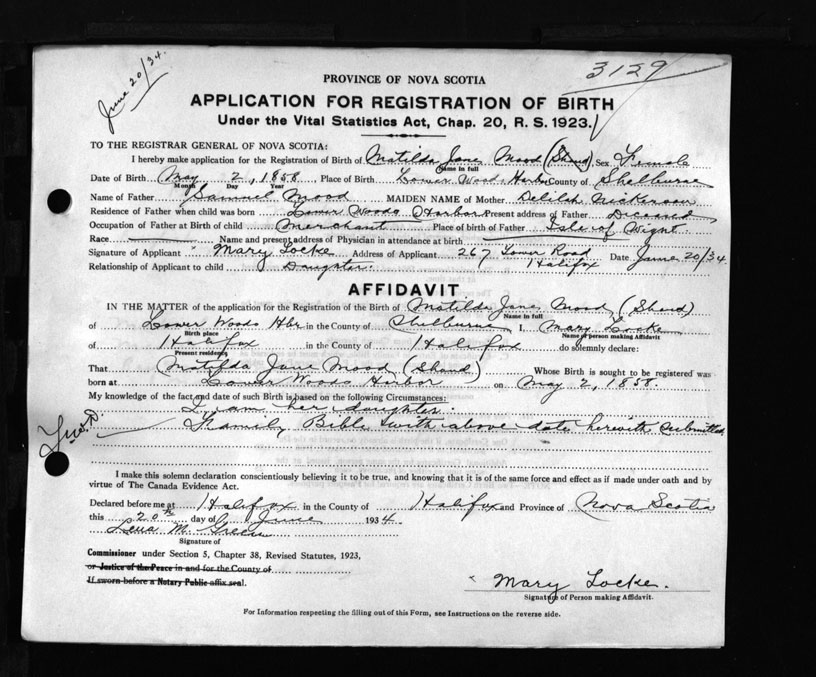 June 20/34.
3129
PROVINCE OF NOVA SCOTIA
APPLICATION FOR REGISTRATION OF BIRTH
Under the Vital Statistics Act, Chap. 20, R. S. 1923.
TO THE REGISTRAR GENERAL OF NOVA SCOTIA:
I hereby make application for the Registration of Birth of Matilda Jane Mood (Shand) Sex Female
Name in full
Date of Birth May 2, 1858 Place of Birth Lower Woods Harbor County of Shelburne
Month Day Year
Name of Father Samuel Mood MAIDEN NAME of Mother Delilah Nickerson
Residence of Father when child was born Lower Woods Harbor Present address of Father Deceased
Occupation of Father at Birth of child Merchant Place of birth of Father Isle of Wight
Race Name and present address of Physician in attendance at birth
Signature of Applicant " Mary Locke Address of Applicant 267 Tower Road Date June 20/34
Relationship of Applicant to child Daughter. Halifax
AFFIDAVIT
IN THE MATTER of the application for the Registration of the Birth of Matilda Jane Mood (Shand)
Name in full
of Lower Woods Hbr in the County of Shelburne I, Mary Locke
Birth place Name of person making Affidavit
of Halifax in the County of Halifax do solemnly declare:
Present residence
That Matilda Jane Mood (Shand) Whose Birth is sought to be registered was
born at Lower Woods Harbor on May 2, 1858.
My knowledge of the fact and date of such Birth is based on the following Circumstances:
I am her daughter.
Family Bible with above date herewith submitted
I make this solemn declaration conscientiously believing it to be true, and knowing that it is of the same force and effect as if made under oath and by
virtue of The Canada Evidence Act.
Declared before me at Halifax in the County of Halifax and Province of Nova Scotia
this 20th day of June 1934.
Lena M. Green
Signature of
Commissioner under Section 5, Chapter 38, Revised Statutes, 1923,
or Justice of the Peace in and for the County of
If sworn before a Notary Public affix seal.
" Mary Locke.
Signature of Person making Affidavit.
For Information respecting the filling out of this Form, see Instructions on the reverse side.